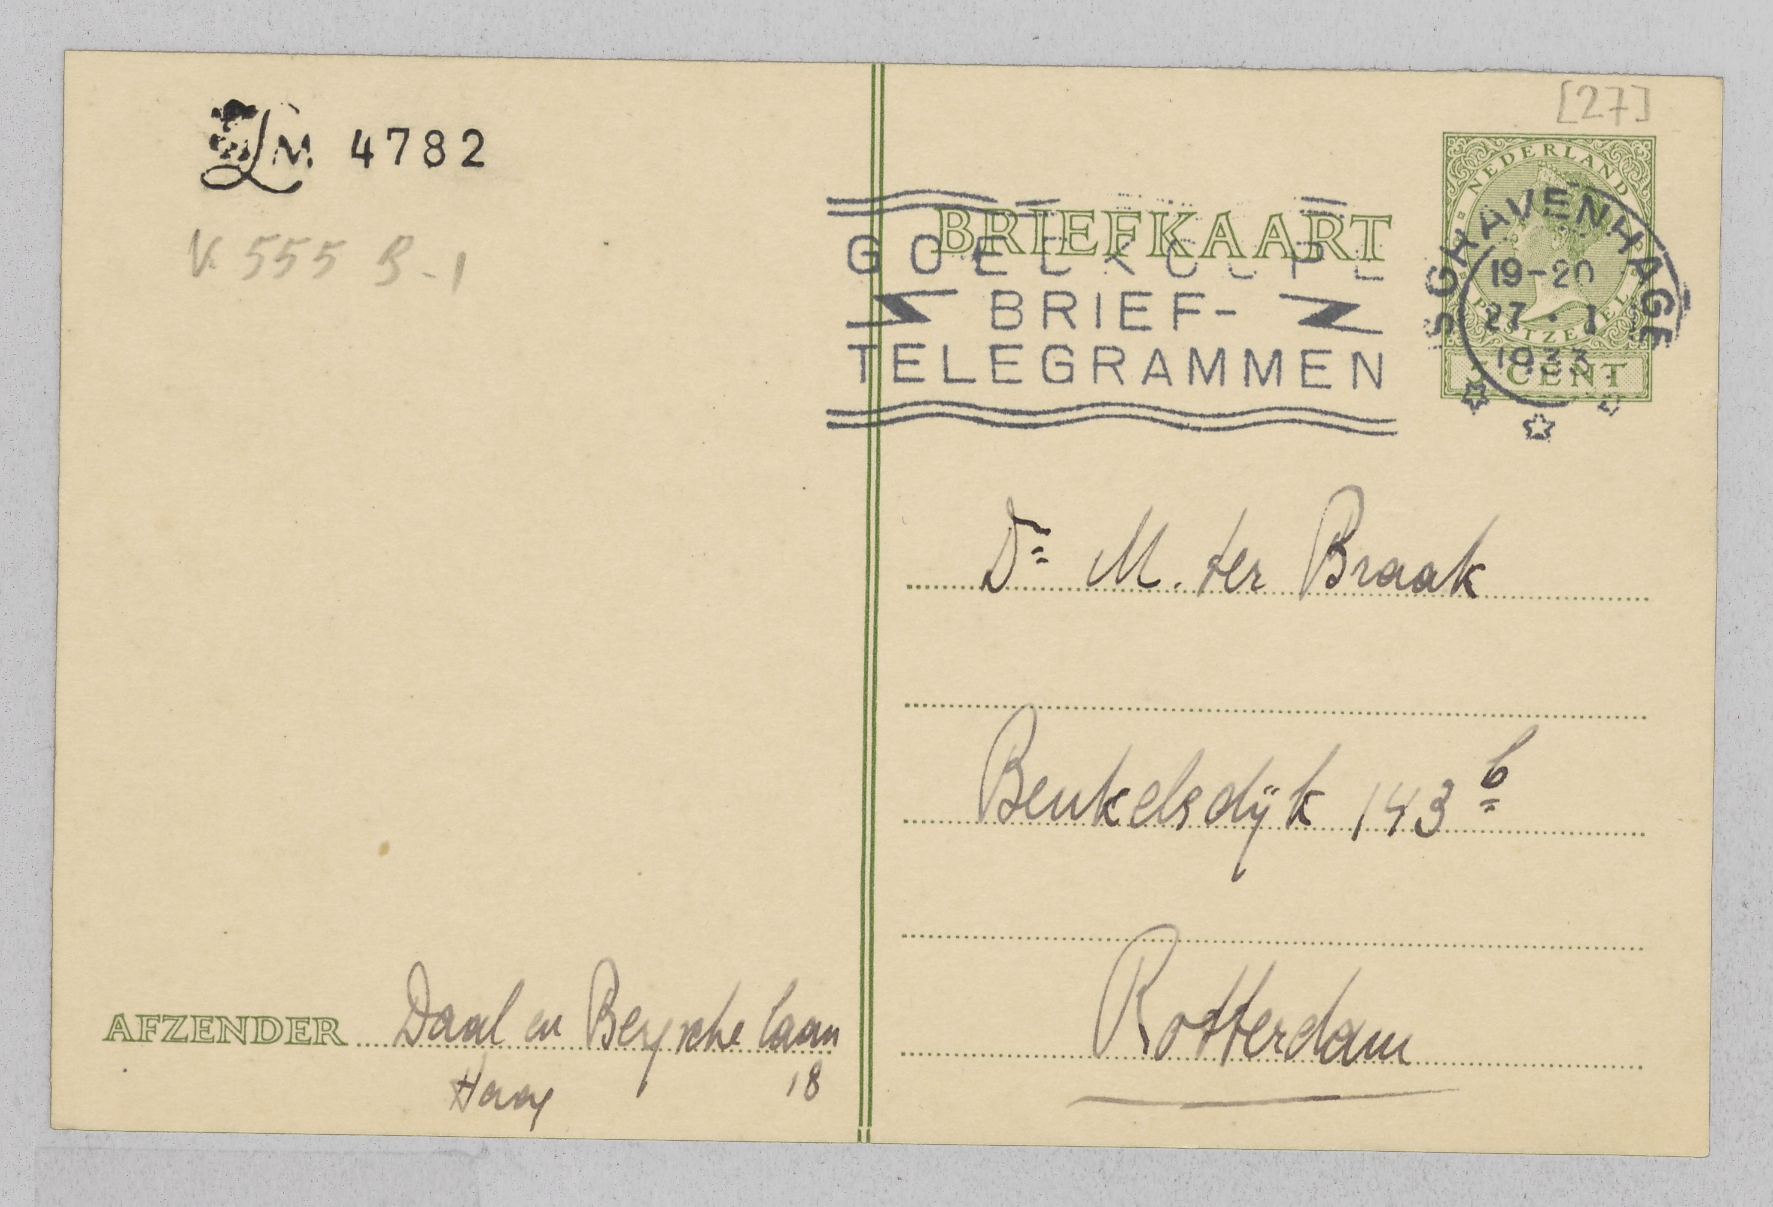 LM 4782
V. 555 B-1
[27]
BRIEFKAART
NEDERLAND
POSTZEGEL
3 CENT
'S GRAVENHAGE
19-20
27 . I
1933
GOEDKOOPE
BRIEF-
TELEGRAMMEN
Dr M. ter Braak
Beukelsdijk 143 b
Rotterdam
AFZENDER Daal en Bergsche laan
Haag 18